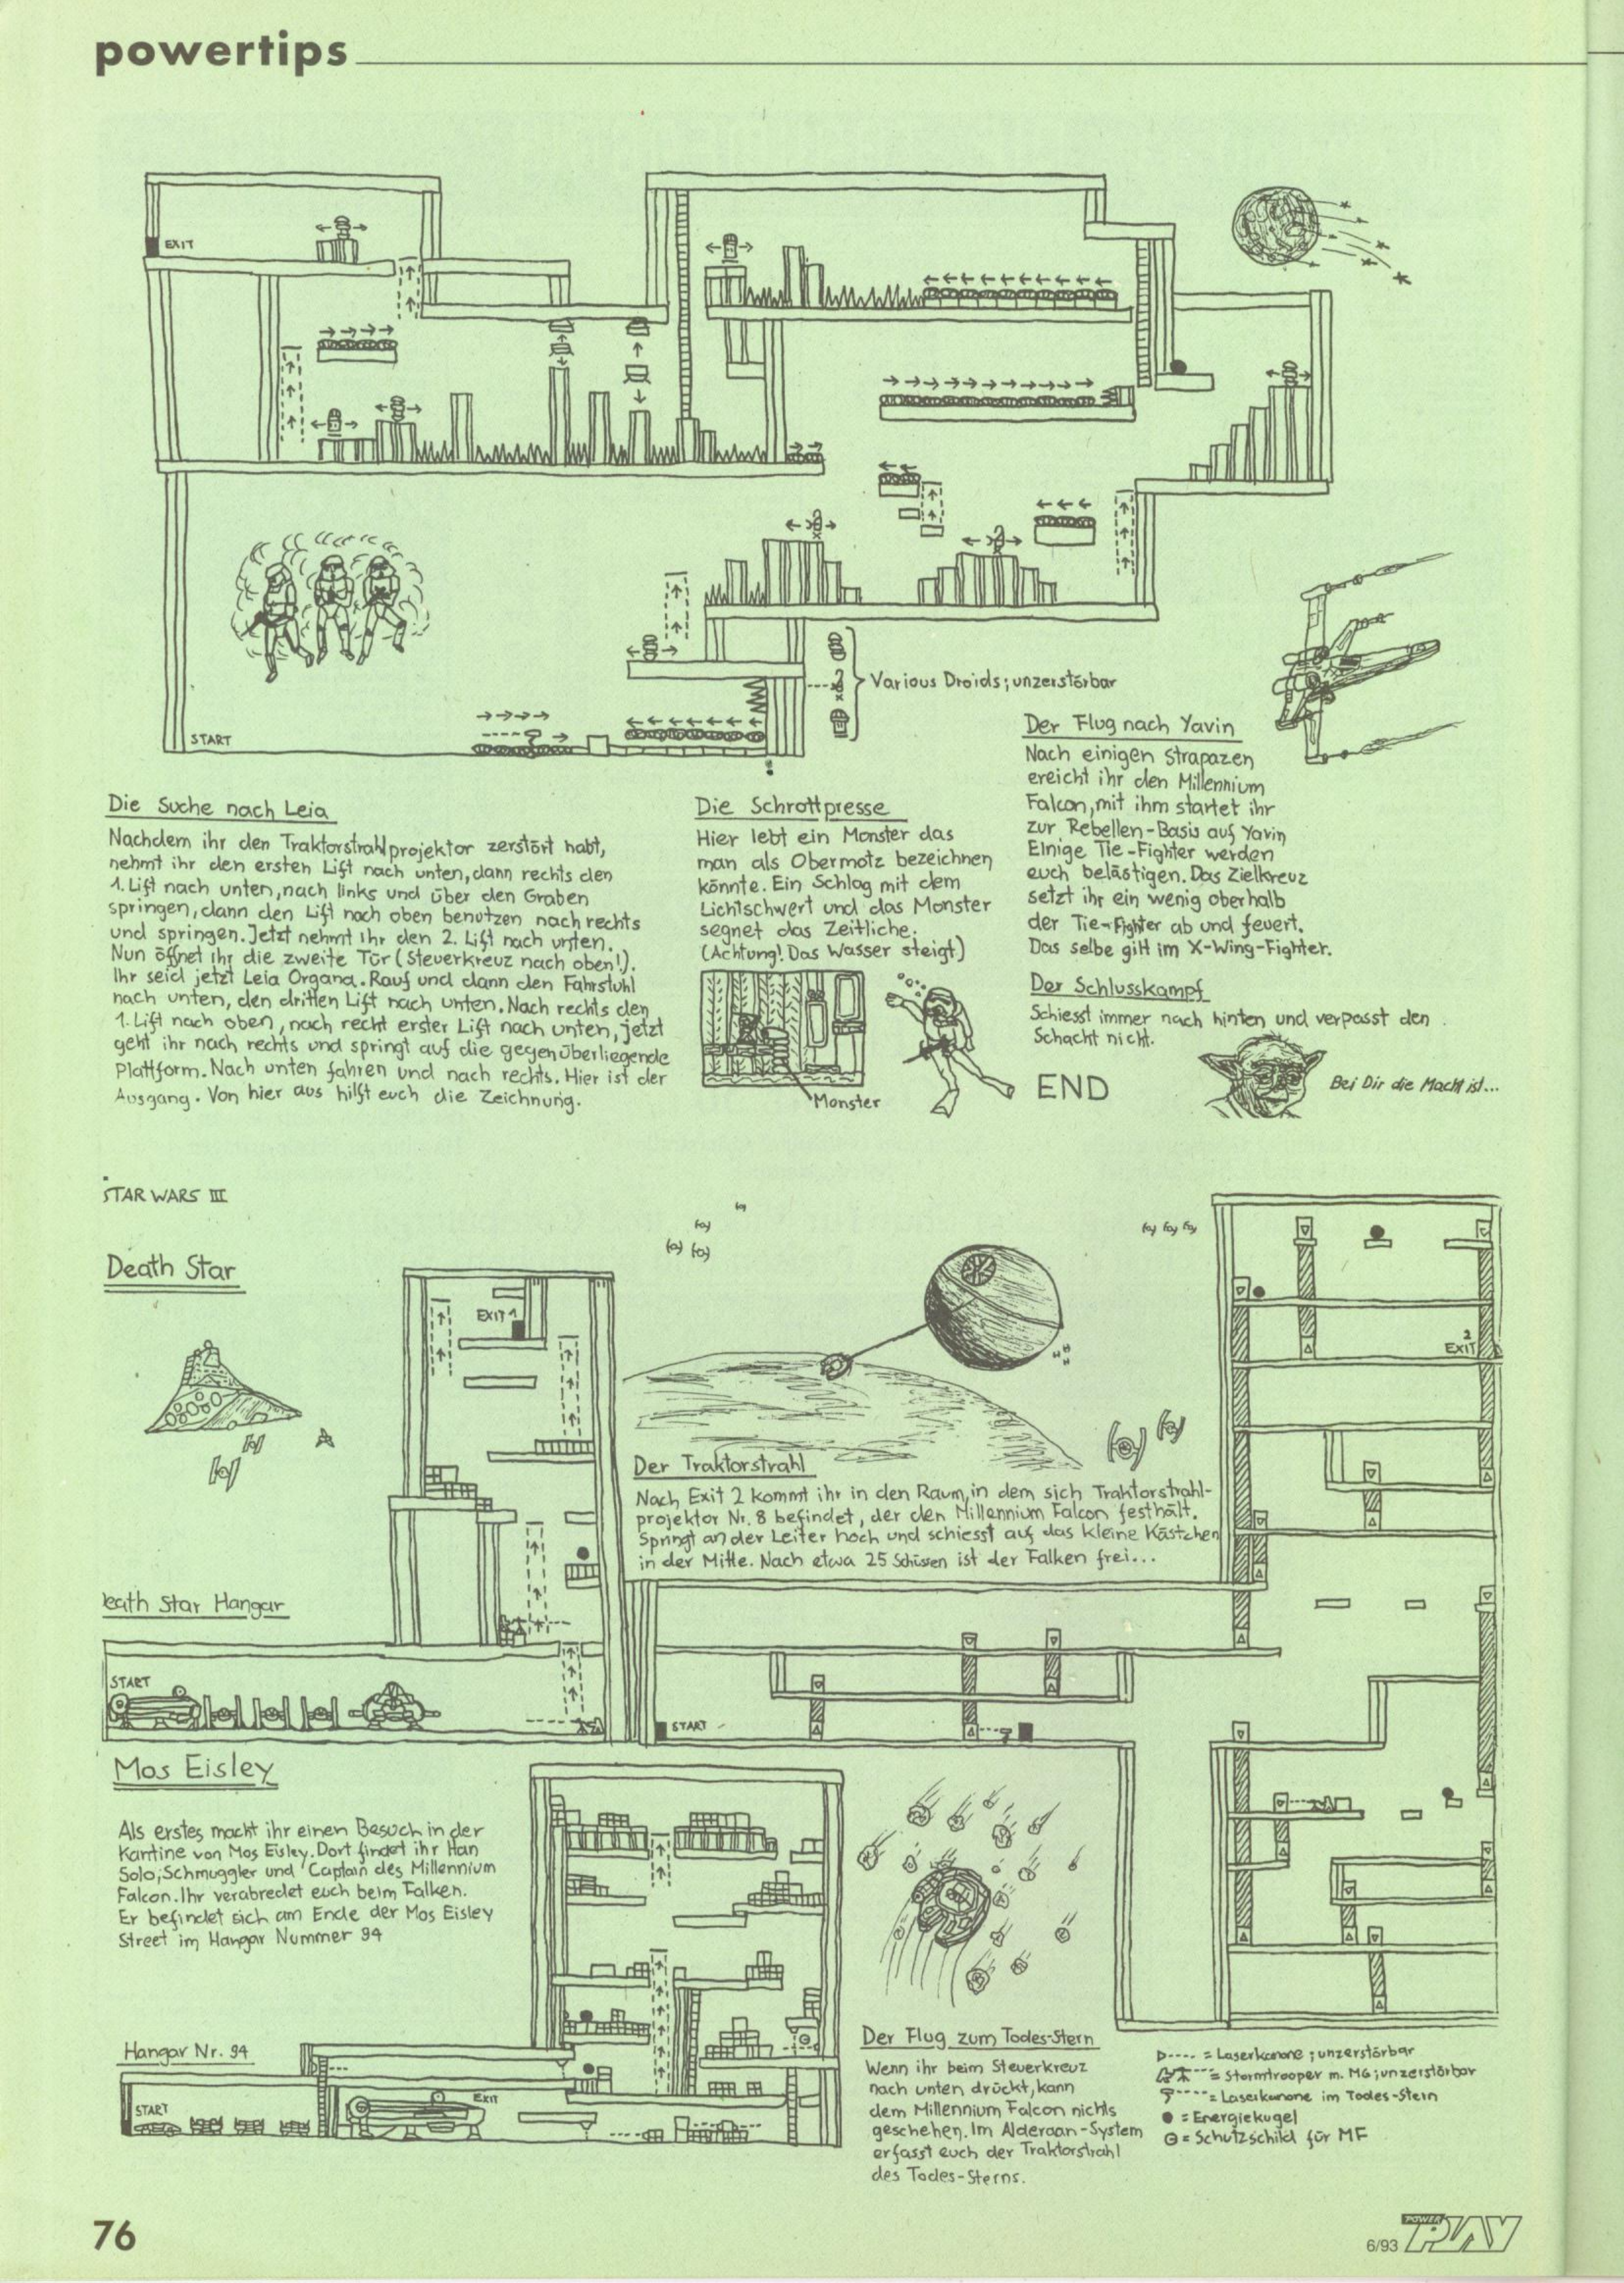 powertips
EXIT
START
Various Droids; unzerstörbar
Die Suche nach Leia
Nachdem ihr den Traktorstrahlprojektor zerstört habt,
nehmt ihr den ersten Lift nach unten, dann rechts den
1. Lift nach unten, nach links und über den Graben
springen, dann den Lift nach oben benutzen nach rechts
und springen. Jetzt nehmt Ihr den 2. Lift nach unten.
Nun öffnet ihr die zweite Tür (Steuerkreuz nach oben!).
Ihr seid jetzt Leia Organa. Rauf und dann den Fahrstuhl
nach unten, den dritten Lift nach unten. Nach rechts den
1. Lift nach oben, nach recht erster Lift nach unten, jetzt
geht ihr nach rechts und springt auf die gegenüberliegende
Plattform. Nach unten fahren und nach rechts. Hier ist der
Ausgang. Von hier aus hilft euch die Zeichnung.
Die Schrottpresse
Hier lebt ein Monster das
man als Obermotz bezeichnen
könnte. Ein Schlag mit dem
Lichtschwert und das Monster
segnet das Zeitliche.
(Achtung! Das Wasser steigt)
Monster
Der Flug nach Yavin
Nach einigen Strapazen
ereicht ihr den Millennium
Falcon, mit ihm startet ihr
zur Rebellen-Basis auf Yavin
Einige Tie-Fighter werden
euch belästigen. Das Zielkreuz
setzt ihr ein wenig oberhalb
der Tie-Fighter ab und feuert.
Das selbe gilt im X-Wing-Fighter.
Der Schlusskampf
Schiesst immer nach hinten und verpasst den
Schacht nicht.
END
Bei Dir die Macht ist...
STAR WARS III
Death Star
EXIT 1
2
EXIT
Der Traktorstrahl
Nach Exit 2 kommt ihr in den Raum, in dem sich Traktorstrahl-
projektor Nr. 8 befindet, der den Millennium Falcon festhält.
Springt an der Leiter hoch und schiesst auf das kleine Kästchen
in der Mitte. Nach etwa 25 Schüssen ist der Falken frei...
eath Star Hangar
START
START
Mos Eisley
Als erstes macht ihr einen Besuch in der
Kantine von Mos Eisley. Dort findet ihr Han
Solo; Schmuggler und Captain des Millennium
Falcon. Ihr verabredet euch beim Falken.
Er befindet sich am Ende der Mos Eisley
Street im Hangar Nummer 94
Hangar Nr. 94
START
EXIT
Der Flug zum Todes-Stern
Wenn ihr beim Steuerkreuz
nach unten drückt, kann
dem Millennium Falcon nichts
geschehen. Im Alderaan-System
erfasst euch der Traktorstrahl
des Todes-Sterns.
= Laserkanone; unzerstörbar
= Stormtrooper m. MG; unzerstörbar
= Laserkanone im Todes-Stern
= Energiekugel
= Schutzschild für MF
76
6/93 POWER PLAY